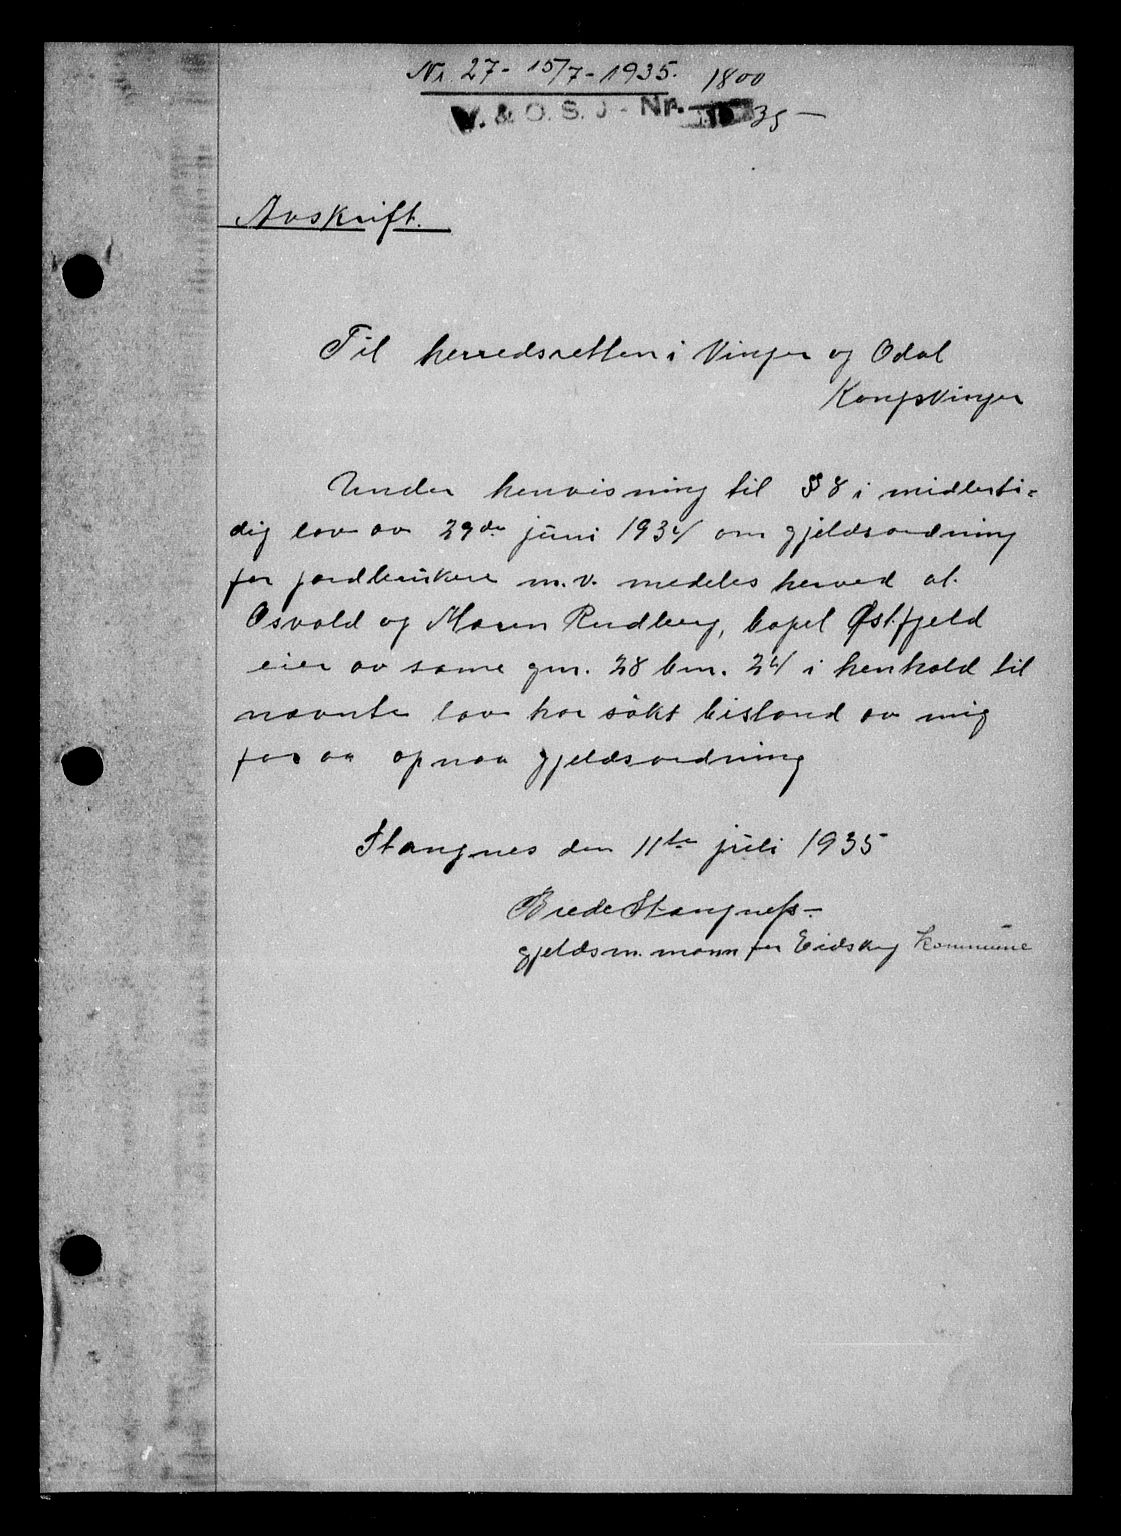 Nr. 27 - 15/7 - 1935. 1800
V. & O. S. J - Nr. 35 —
Avskrift.
Til herredsretten i Vinger og Odal
Kongsvinger
Under henvisning til § 8 i midlerti=
dig lov av 29de juni 1934 om gjeldsordning
for jordbrukere m.v. medeles herved at.
Osvald og Maren Rudberg, bopel Østfjeld
eier av same gnr. 28 bnr. 24 i henhold til
nævnte lov har søkt bistand av mig
for aa opnaa gjeldsordning
Stangnes den 11te juli 1935
Brede Stangness -
gjeldsm. mann for Eidskog Kommune